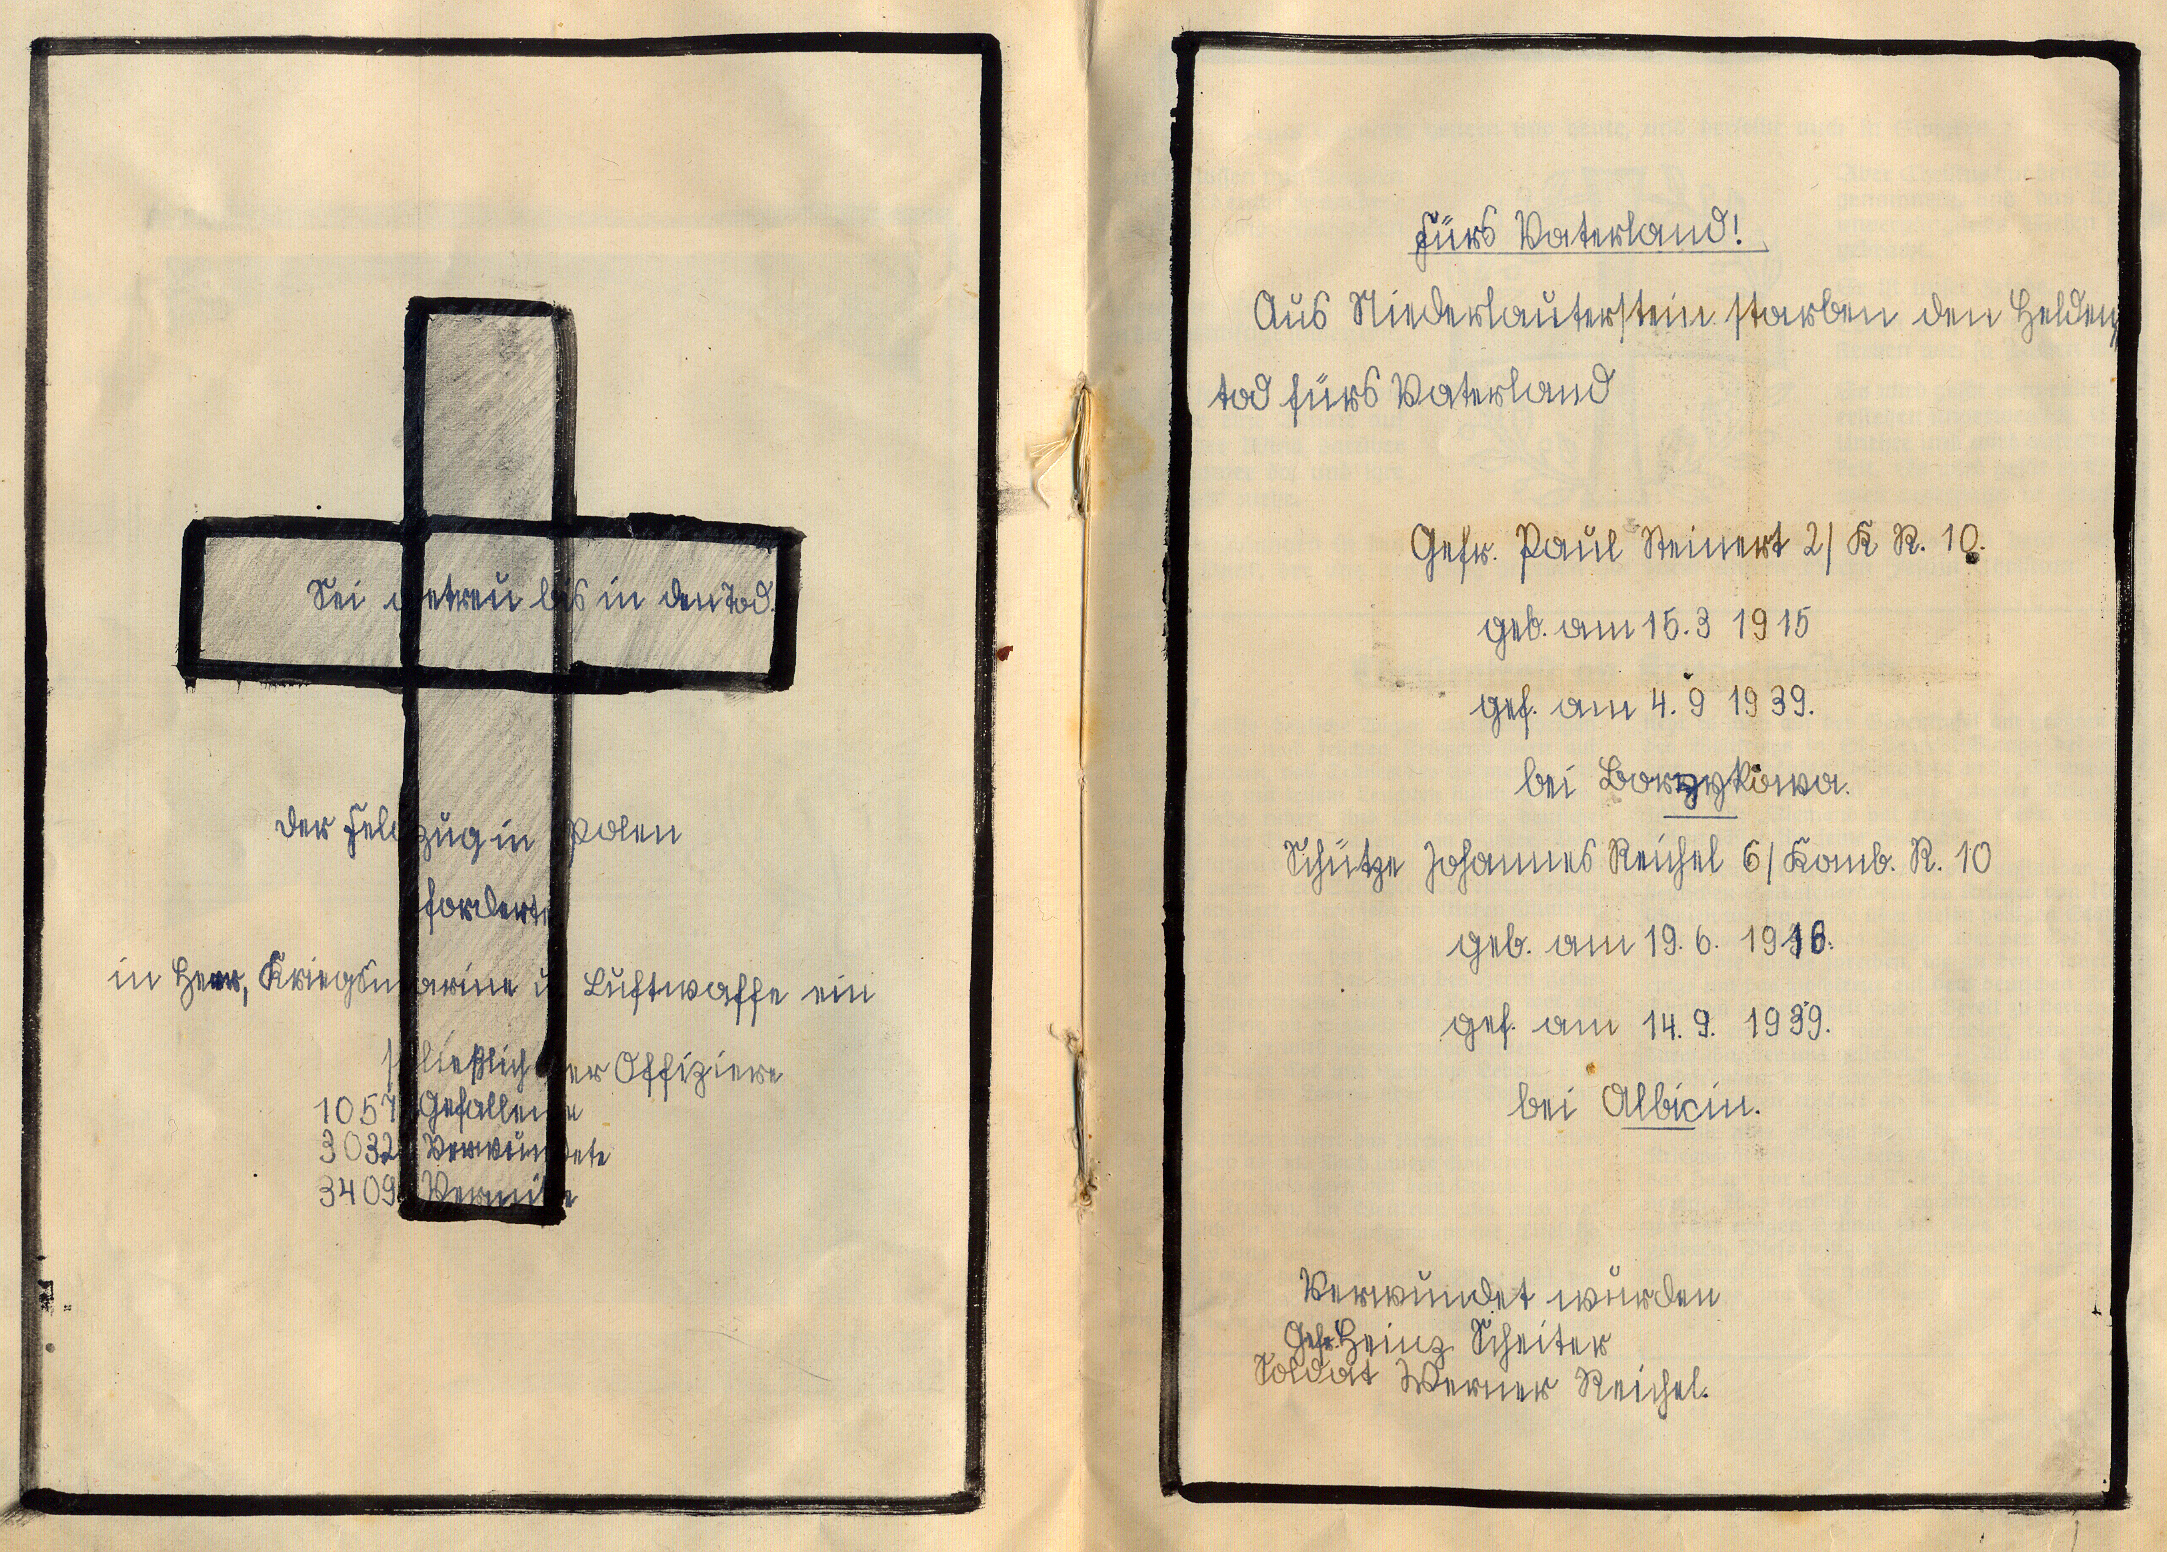 Sei getreu bis in den Tod.
Der Feldzug in Polen
forderte
in Heer, Kriegsmarine u. Luftwaffe ein
schließlich der Offiziere
Gefallene
Verwundete
3409 Vermißte
Fürs Vaterland!
Aus Niederlauterstein starben den Helden„
tod fürs Vaterland
Gefr. Paul Steinert 2/ K R. 10.
geb. am 15.3 1915
gef. am 4. 9 1939.
bei Borzykowa.
Schütze Johannes Reichel 6/ Komb. R. 10
geb. am 19. 6. 1916.
gef. am 14. 9. 1939.
bei
Verwundet wurden
Gefr. Heinz Scheiter
Soldat Werner Reichel.